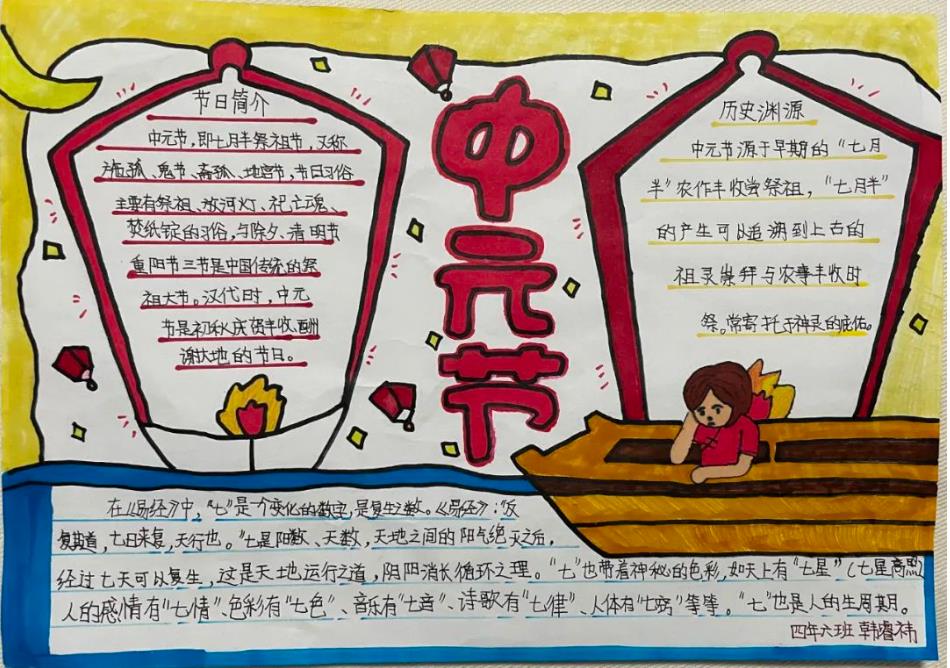 中元节
节日简介
中元节，即七月半祭祖节，又称
施孤、鬼节、斋孤、地官节，节日习俗
主要有祭祖、放河灯、祀亡魂、
焚纸锭的习俗，与除夕、清明节
重阳节三节是中国传统的祭
祖大节。汉代时，中元
节是初秋庆贺丰收、酬
谢大地的节日。
历史渊源
中元节源于早期的“七月
半”农作丰收尝祭祖，“七月半”
的产生可以追溯到上古的
祖灵崇拜与农事丰收时
祭。常寄托于神灵的庇佑。
在《易经》中，“七”是一个变化的数字，是复生之数。《易经》：“反
复其道，七日来复，天行也。”七是阳数、天数，天地之间的阳气绝灭之后，
经过七天可以复生，这是天地运行之道，阴阳消长循环之理。“七”也带着神秘的色彩，如天上有“七星”（七星高照）
人的感情有“七情”、色彩有“七色”、音乐有“七音”、诗歌有“七律”、人体有“七窍”等等。“七”也是人的生周期。
四年六班 韩睿祎